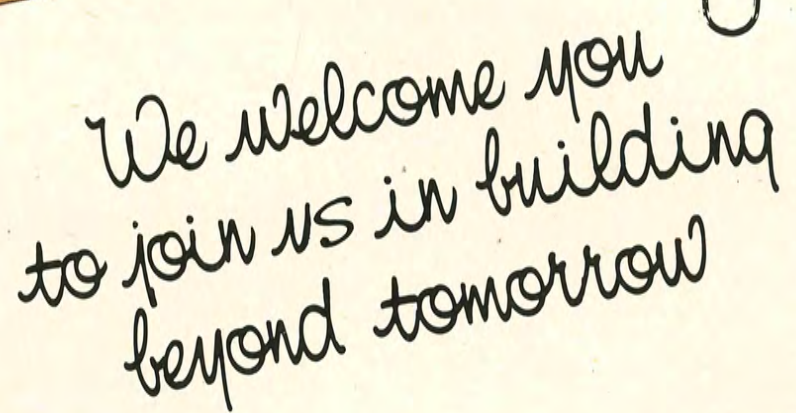 We welcome you
to join us in building
beyond tomorrow